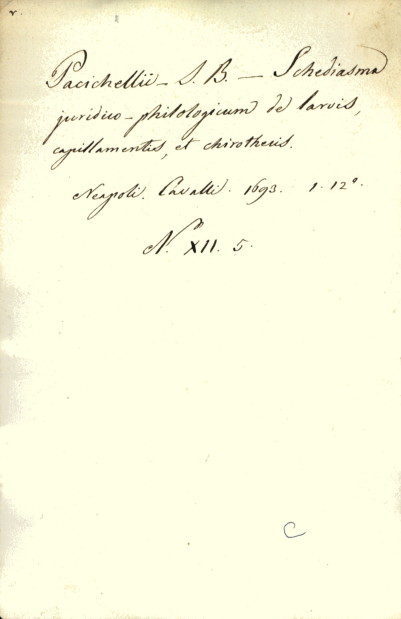 r.
Pacichellii - I. B. - Schediasma
juridico-philologicum de larvis,
capillamentis, et chirothecis.
Neapoli. Cavalli. 1693. 1. 12º.
Nº XII. 5.
C